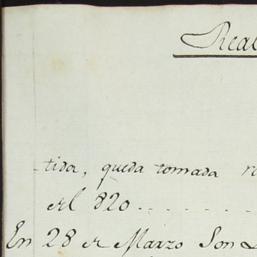 Real
tida, queda tomada r
del 820
En 28 de Marzo Son